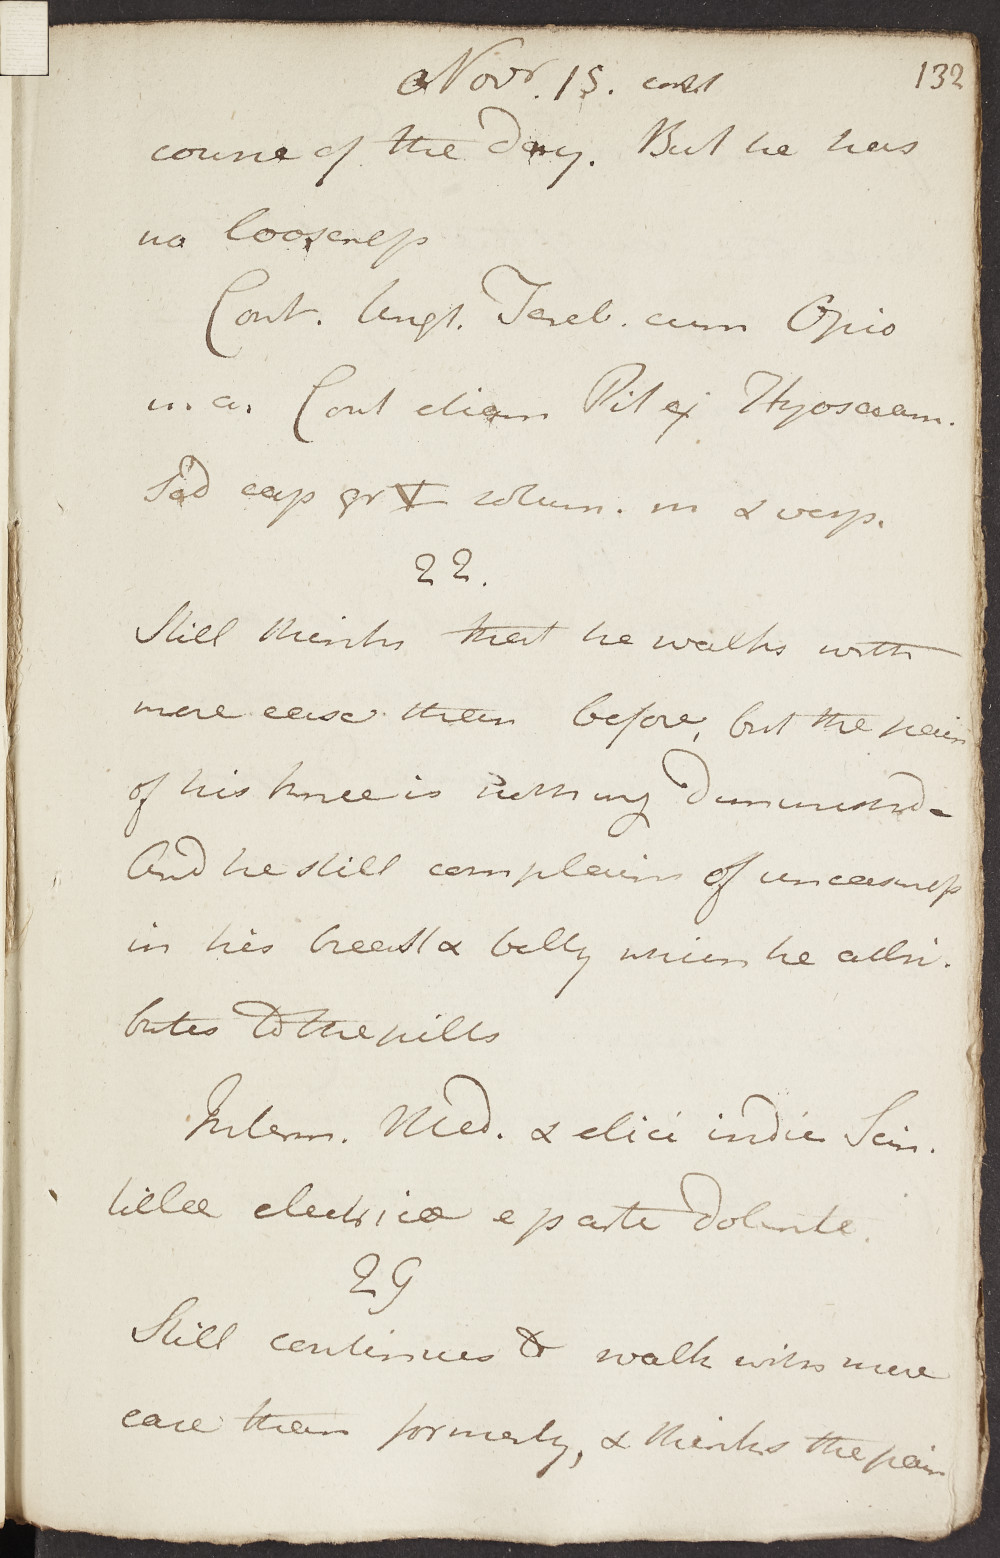 Novr. 15. cont 132
course of the Day. But he has
no looseness
Cont. Ungt. Tereb. cum Opio
m. a. Cont etiam Pil ej Hyosciam.
Sed cap gr V solum. m & vesp.
22.
Still thinks that he walks with
more ease than before, but the pain
of his knee is nothing Diminished -
And he still complains of uneasiness
in his breast & belly which he attri-
butes to the pills
Interm. Med. & elici indies Scin-
tillae electricae e parte Dolente.
29
Still continues to walk with more
ease than formerly, & thinks the pain